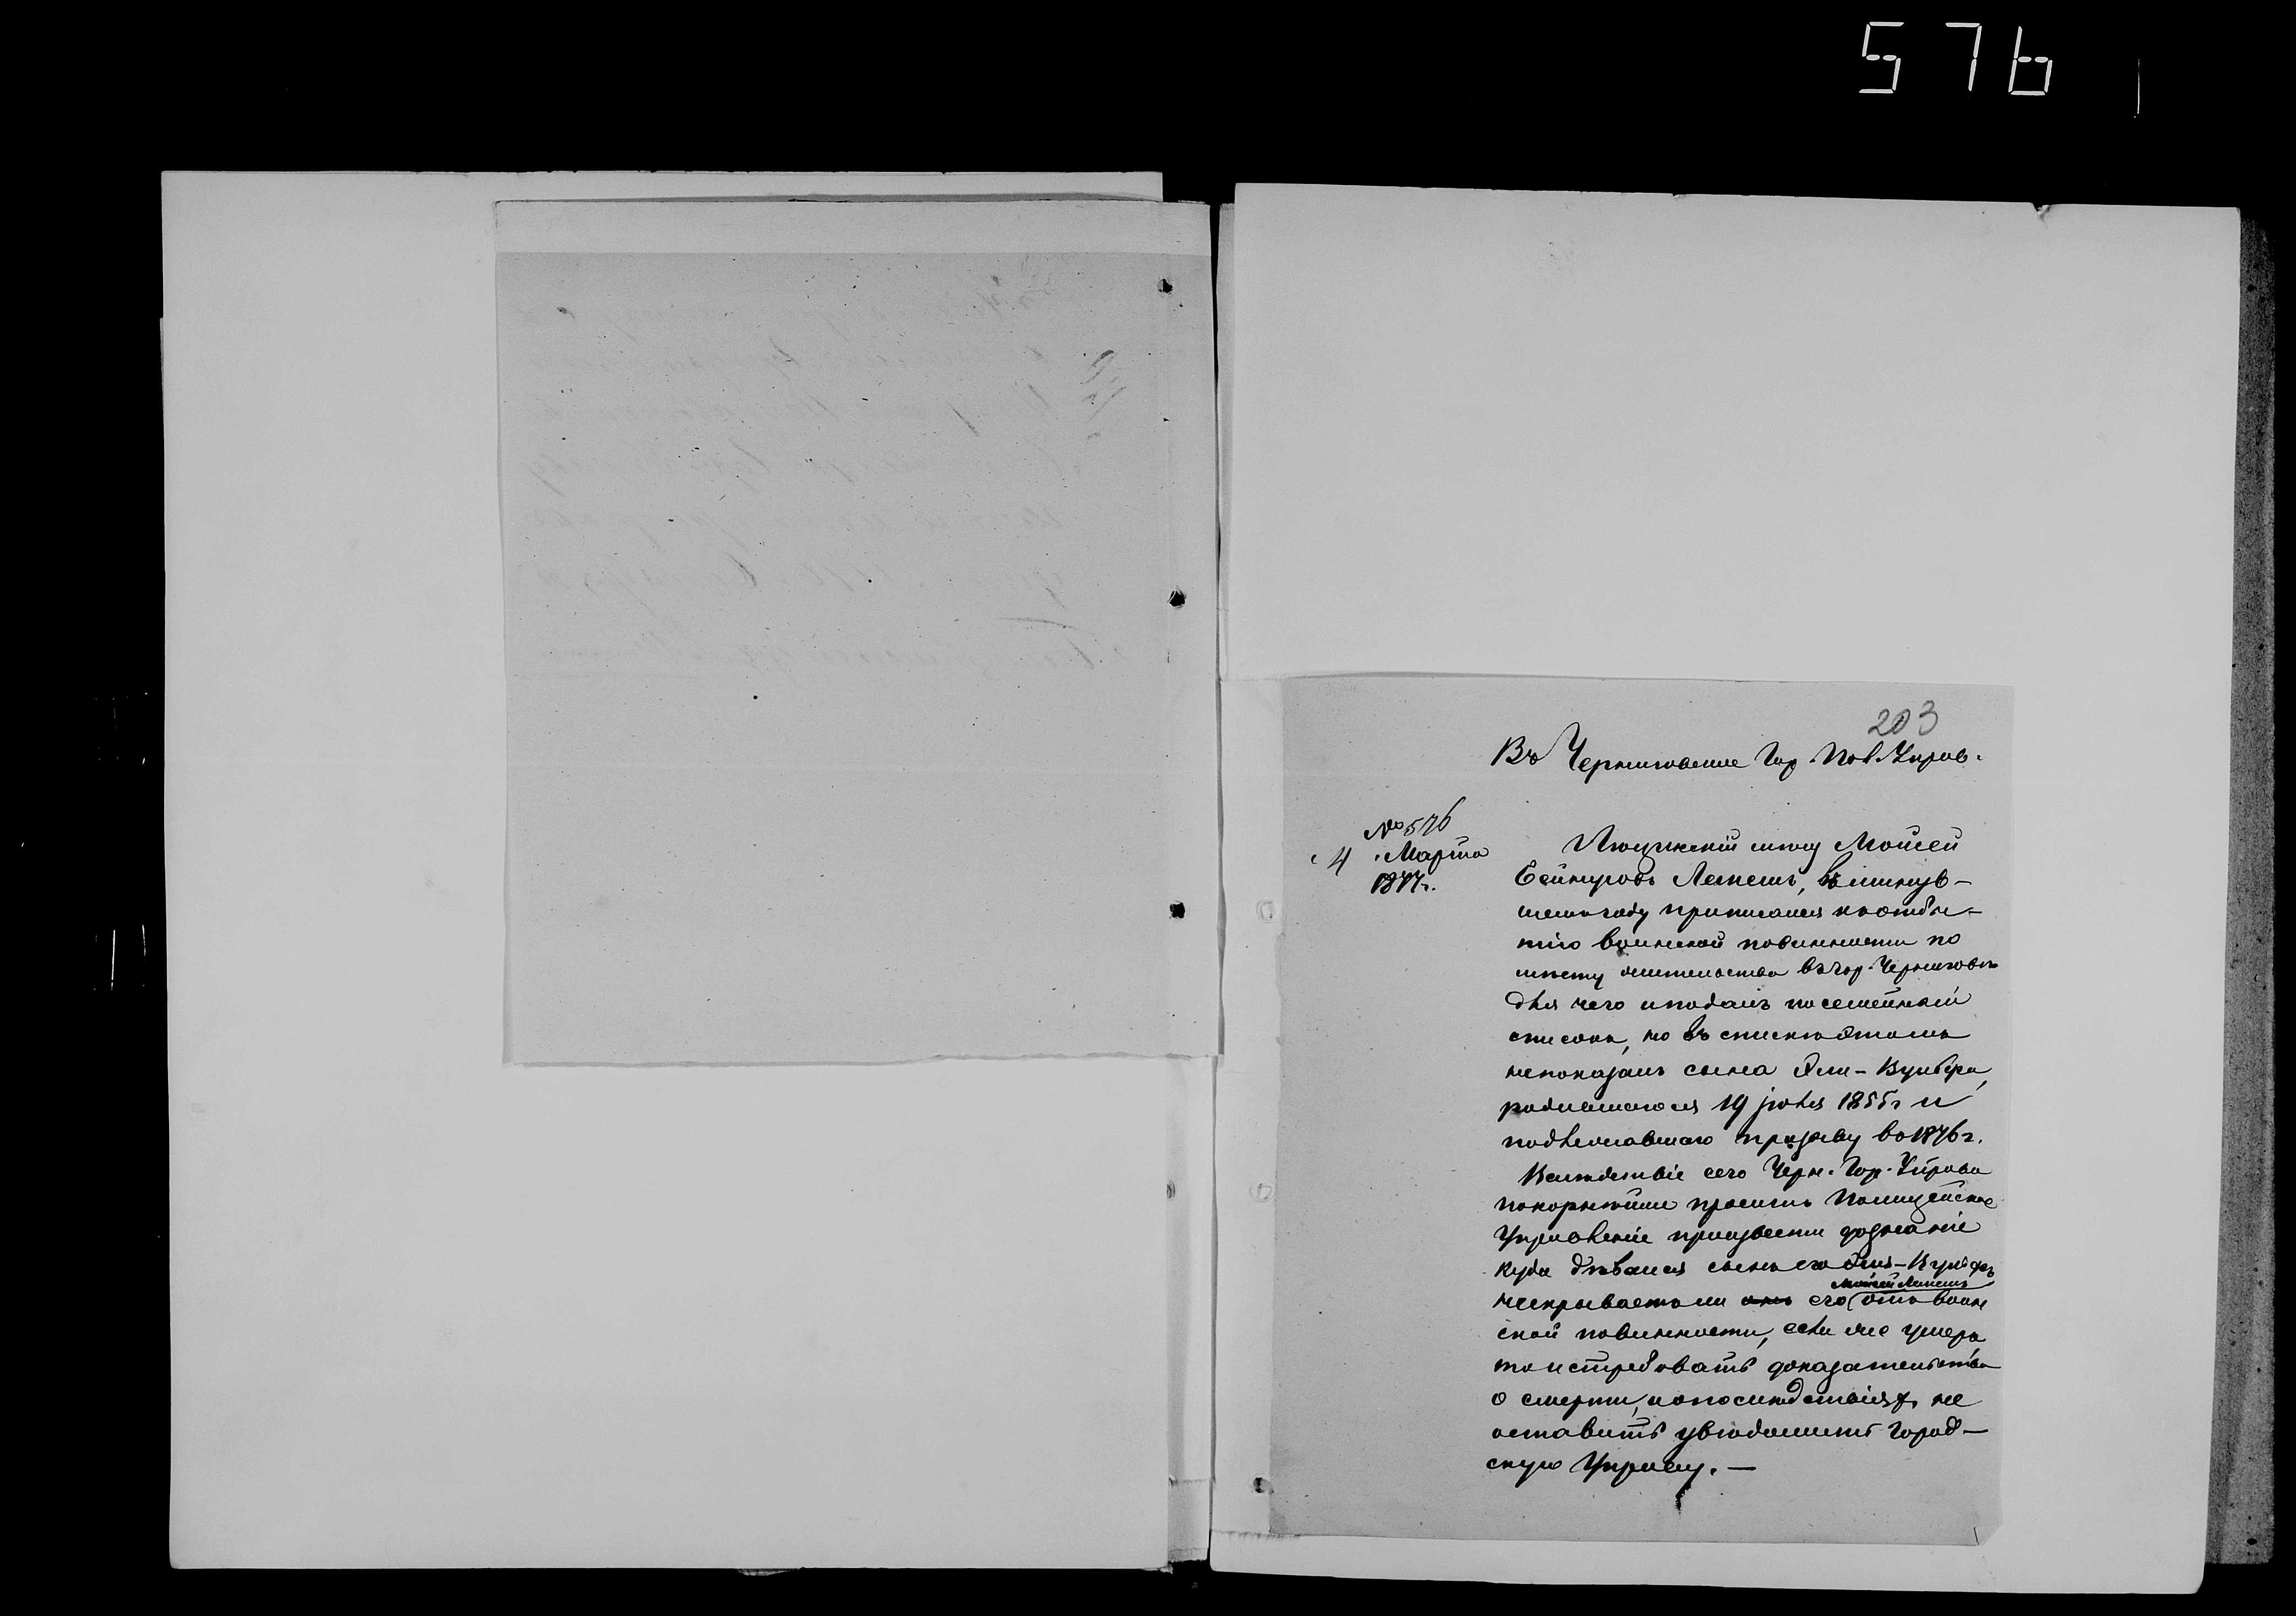 576
203
Въ Черниговское Гор. Пол. Управ.
№ 576
4 Марта
1877 г.
Мойсей
Лемеш, въ минув-
шемъ году приписался къ отбы-
тію воинской повинности по
мѣсту жительства въ гор. Черниговѣ
для чего и подалъ посемейный
списокъ, но въ спискѣ этомъ
непоказалъ сына Эли-Вульфа,
родившагося 19 іюля 1855 г и
подлежавшаго призыву въ 1876 г.
Вслѣдствіе сего Черн. Гор. Управа
покорнѣйше проситъ Полицейское
Управленіе произвести дознаніе
куда дѣвался сынъ его Эля-Вульфъ
нескрываетъ ли онъ его (Мойсей Лемешъ) отъ воин
ской повинности, если же умеръ,
то истребовать доказательства
о смерти, и о послѣдствіяхъ не
оставить увѣдомить Город-
скую Управу. —